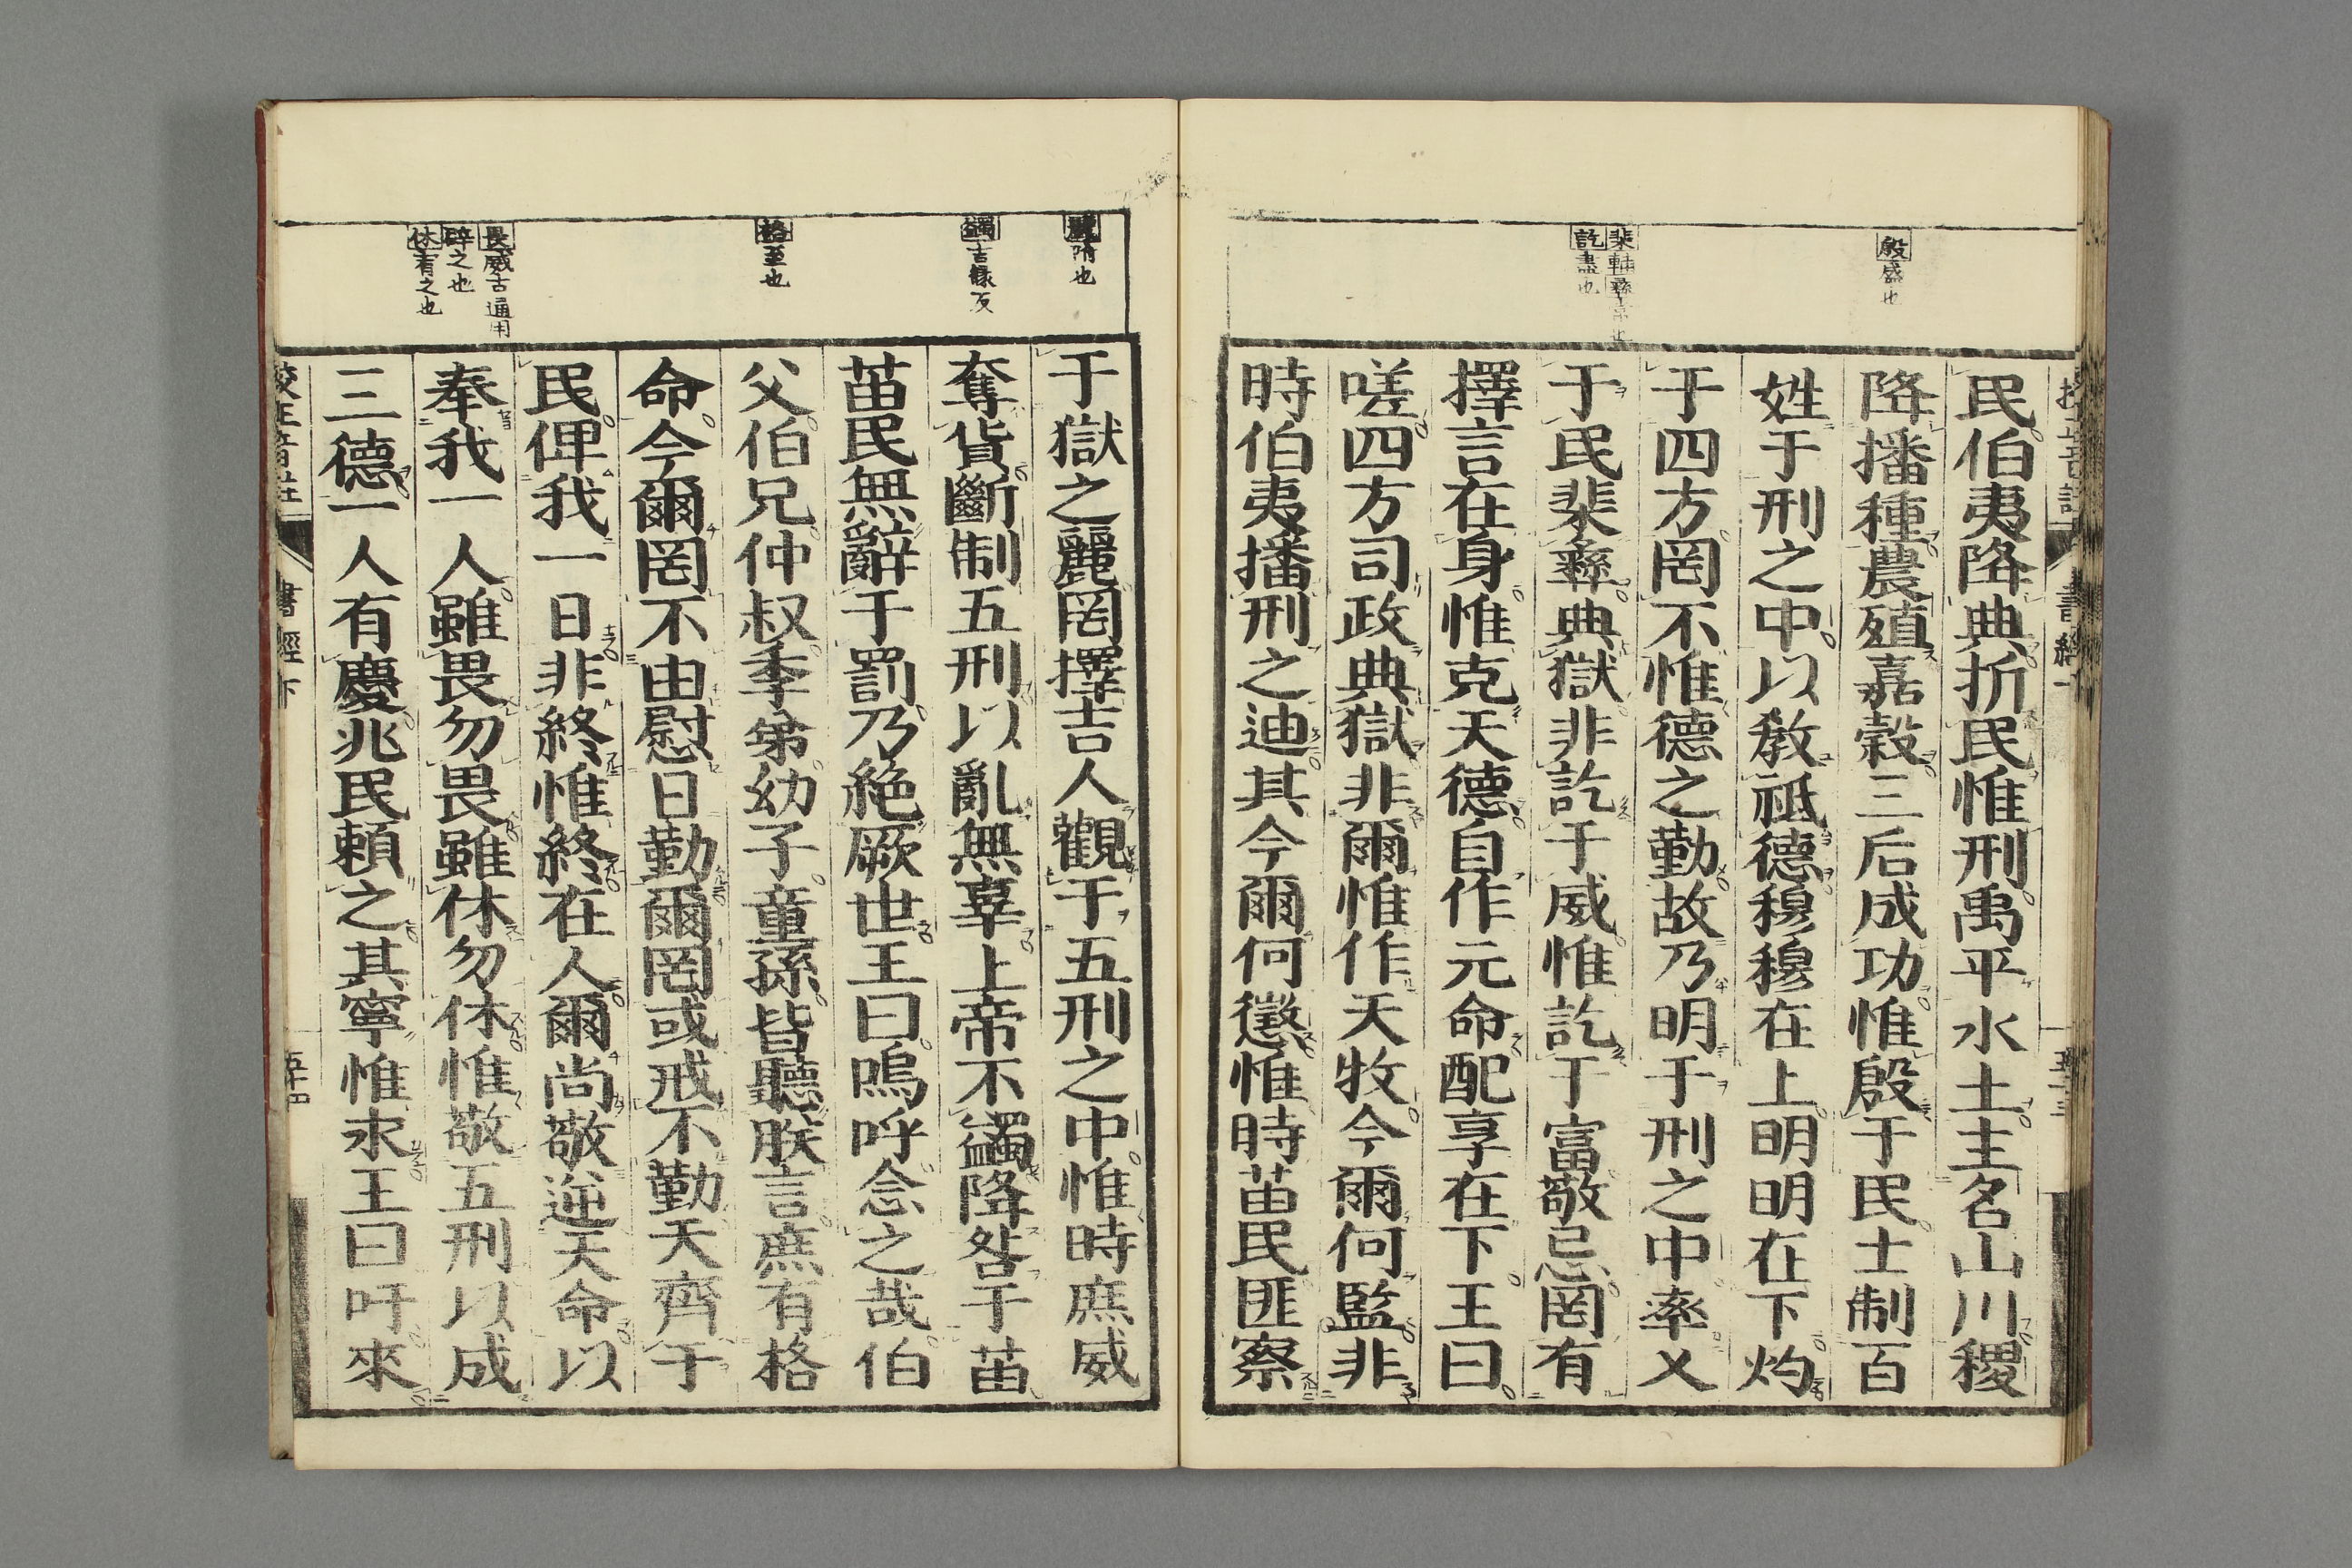 殷盛也
棐輔彝常也
訖盡也
民伯夷降典折民惟刑禹平水土主名山川稷
降播種農殖嘉穀三后成功惟殷于民士制百
姓于刑之中以教祗德穆穆在上明明在下灼
于四方罔不惟德之勤故乃明于刑之中率乂
于民棐彝典獄非訖于威惟訖于富敬忌罔有
擇言在身惟克天德自作元命配享在下王曰
嗟四方司政典獄非爾惟作天牧今爾何監非
時伯夷播刑之迪其今爾何懲惟時苗民匪察
麗附也
蠲吉緣反
格至也
畏威古通用
辟之也
休宥之也
于獄之麗罔擇吉人觀于五刑之中惟時庶威
奪貨斷制五刑以亂無辜上帝不蠲降咎于苗
苗民無辭于罰乃絕厥世王曰嗚呼念之哉伯
父伯兄仲叔季弟幼子童孫皆聽朕言庶有格
命今爾罔不由慰日勤爾罔或戒不勤天齊于
民俾我一日非終惟終在人爾尚敬逆天命以
奉我一人雖畏勿畏雖休勿休惟敬五刑以成
三德一人有慶兆民賴之其寧惟永王曰吁來
校正音註 書經下 五十四